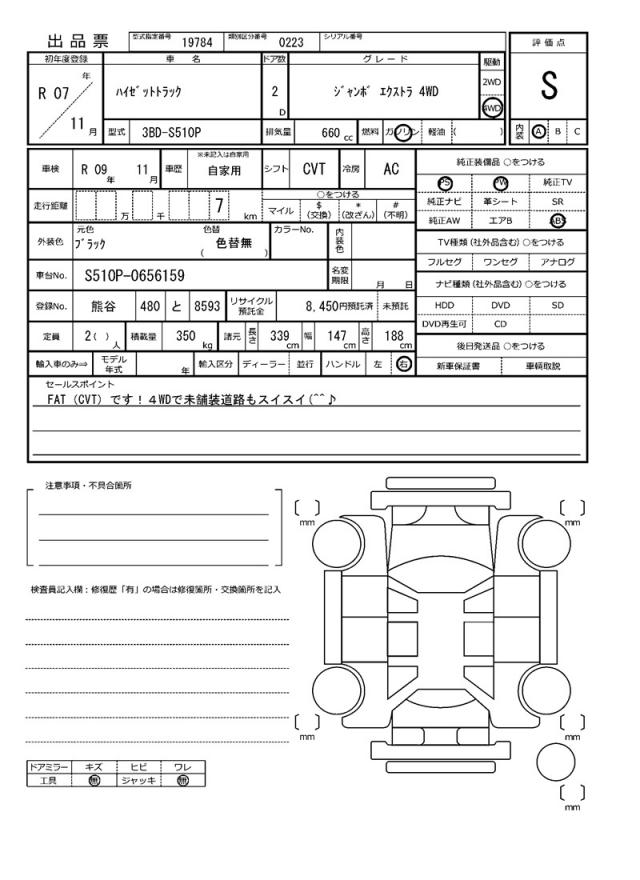 出品票 型式指定番号 19784 類別区分番号 0223 シリアル番号
初年度登録 車名 ドア数 グレード 駆動 評価点
R 07 年 11 月 ハイゼットトラック 2 D ジャンボ エクストラ 4WD 2WD 4WD S
型式 3BD-S510P 排気量 660 cc 燃料 ガソリン 軽油 ( ) 内装 A B C
車検 R 09 年 11 月 車歴 ※未記入は自家用 自家用 シフト CVT 冷房 AC 純正装備品 ○をつける
PS PW 純正TV
走行距離 万 千 7 km ○をつける 純正ナビ 革シート SR
マイル $ (交換) * (改ざん) # (不明) 純正AW エアB ABS
外装色 元色 ブラック 色替 ( 色替無 ) カラーNo. 内装色 TV種類 (社外品含む) ○をつける
フルセグ ワンセグ アナログ
車台No. S510P-0656159 名変期限 月 日 ナビ種類 (社外品含む) ○をつける
登録No. 熊谷 480 と 8593 リサイクル預託金 8,450円預託済 未預託 HDD DVD SD
DVD再生可 CD
定員 2 ( ) 人 積載量 350 kg 諸元 長さ 339 cm 幅 147 cm 高さ 188 cm 後日発送品 ○をつける
輸入車のみ⇒ モデル年式 年 輸入区分 ディーラー 並行 ハンドル 左 右 新車保証書 車輌取説
セールスポイント
FAT (CVT) です!4WDで未舗装道路もスイスイ(^^♪
注意事項・不具合箇所
mm mm
検査員記入欄:修復歴「有」の場合は修復箇所・交換箇所を記入
mm mm
ドアミラー キズ ヒビ ワレ
工具 無 ジャッキ 無
mm